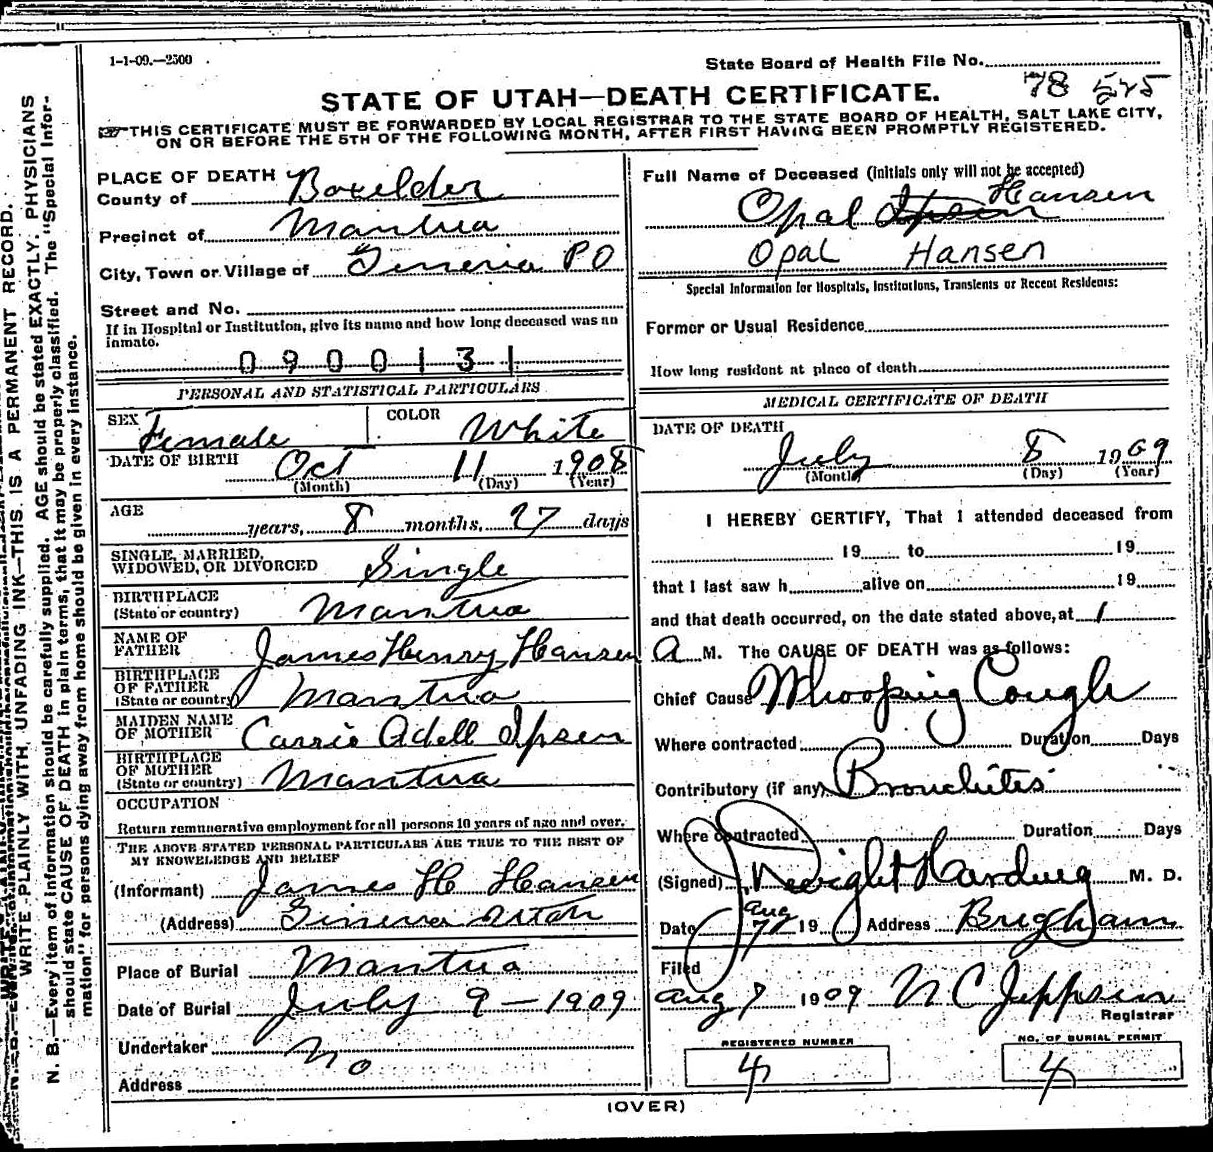 1-1-09.—2500
State Board of Health File No.
78 525
STATE OF UTAH—DEATH CERTIFICATE.
THIS CERTIFICATE MUST BE FORWARDED BY LOCAL REGISTRAR TO THE STATE BOARD OF HEALTH, SALT LAKE CITY,
ON OR BEFORE THE 5TH OF THE FOLLOWING MONTH, AFTER FIRST HAVING BEEN PROMPTLY REGISTERED.
WRITE PLAINLY WITH UNFADING INK—THIS IS A PERMANENT RECORD.
N. B.—Every item of information should be carefully supplied. AGE should be stated EXACTLY. PHYSICIANS
should state CAUSE OF DEATH in plain terms, that it may be properly classified. The "Special Infor-
mation" for persons dying away from home should be given in every instance.
PLACE OF DEATH
County of Boxelder
Precinct of Mantua
City, Town or Village of Geneva PO
Street and No.
If in Hospital or Institution, give its name and how long deceased was an
inmate.
0900131
PERSONAL AND STATISTICAL PARTICULARS
SEX Female COLOR White
DATE OF BIRTH Oct 11 1908
(Month) (Day) (Year)
AGE years, 8 months, 27 days
SINGLE, MARRIED,
WIDOWED, OR DIVORCED Single
BIRTHPLACE
(State or country) Mantua
NAME OF
FATHER James Henry Hansen
BIRTHPLACE
OF FATHER
(State or country) Mantua
MAIDEN NAME
OF MOTHER Carrie Adell Ipsen
BIRTHPLACE
OF MOTHER
(State or country) Mantua
OCCUPATION
Return remunerative employment for all persons 10 years of age and over.
THE ABOVE STATED PERSONAL PARTICULARS ARE TRUE TO THE BEST OF
MY KNOWELEDGE AND BELIEF
(Informant) James H Hansen
(Address) Geneva Utah
Place of Burial Mantua
Date of Burial July 9 - 1909
Undertaker No
Address
Full Name of Deceased (Initials only will not be accepted)
Opal Ipsen Hansen
Opal Hansen
Special Information for Hospitals, Institutions, Transients or Recent Residents:
Former or Usual Residence
How long resident at place of death
MEDICAL CERTIFICATE OF DEATH
DATE OF DEATH
July 8 1909
(Month) (Day) (Year)
I HEREBY CERTIFY, That I attended deceased from
19 to 19
that I last saw h alive on 19
and that death occurred, on the date stated above, at 1
A M. The CAUSE OF DEATH was as follows:
Chief Cause Whooping Cough
Where contracted Duration Days
Contributory (if any) Bronchites
Where contracted Duration Days
(Signed) J. Dwight Harding M. D.
Date Aug 7 19 Address Brigham
Filed
Aug 7 1909 N C Jeppsen
Registrar
REGISTERED NUMBER
4
NO. OF BURIAL PERMIT
4
(OVER)